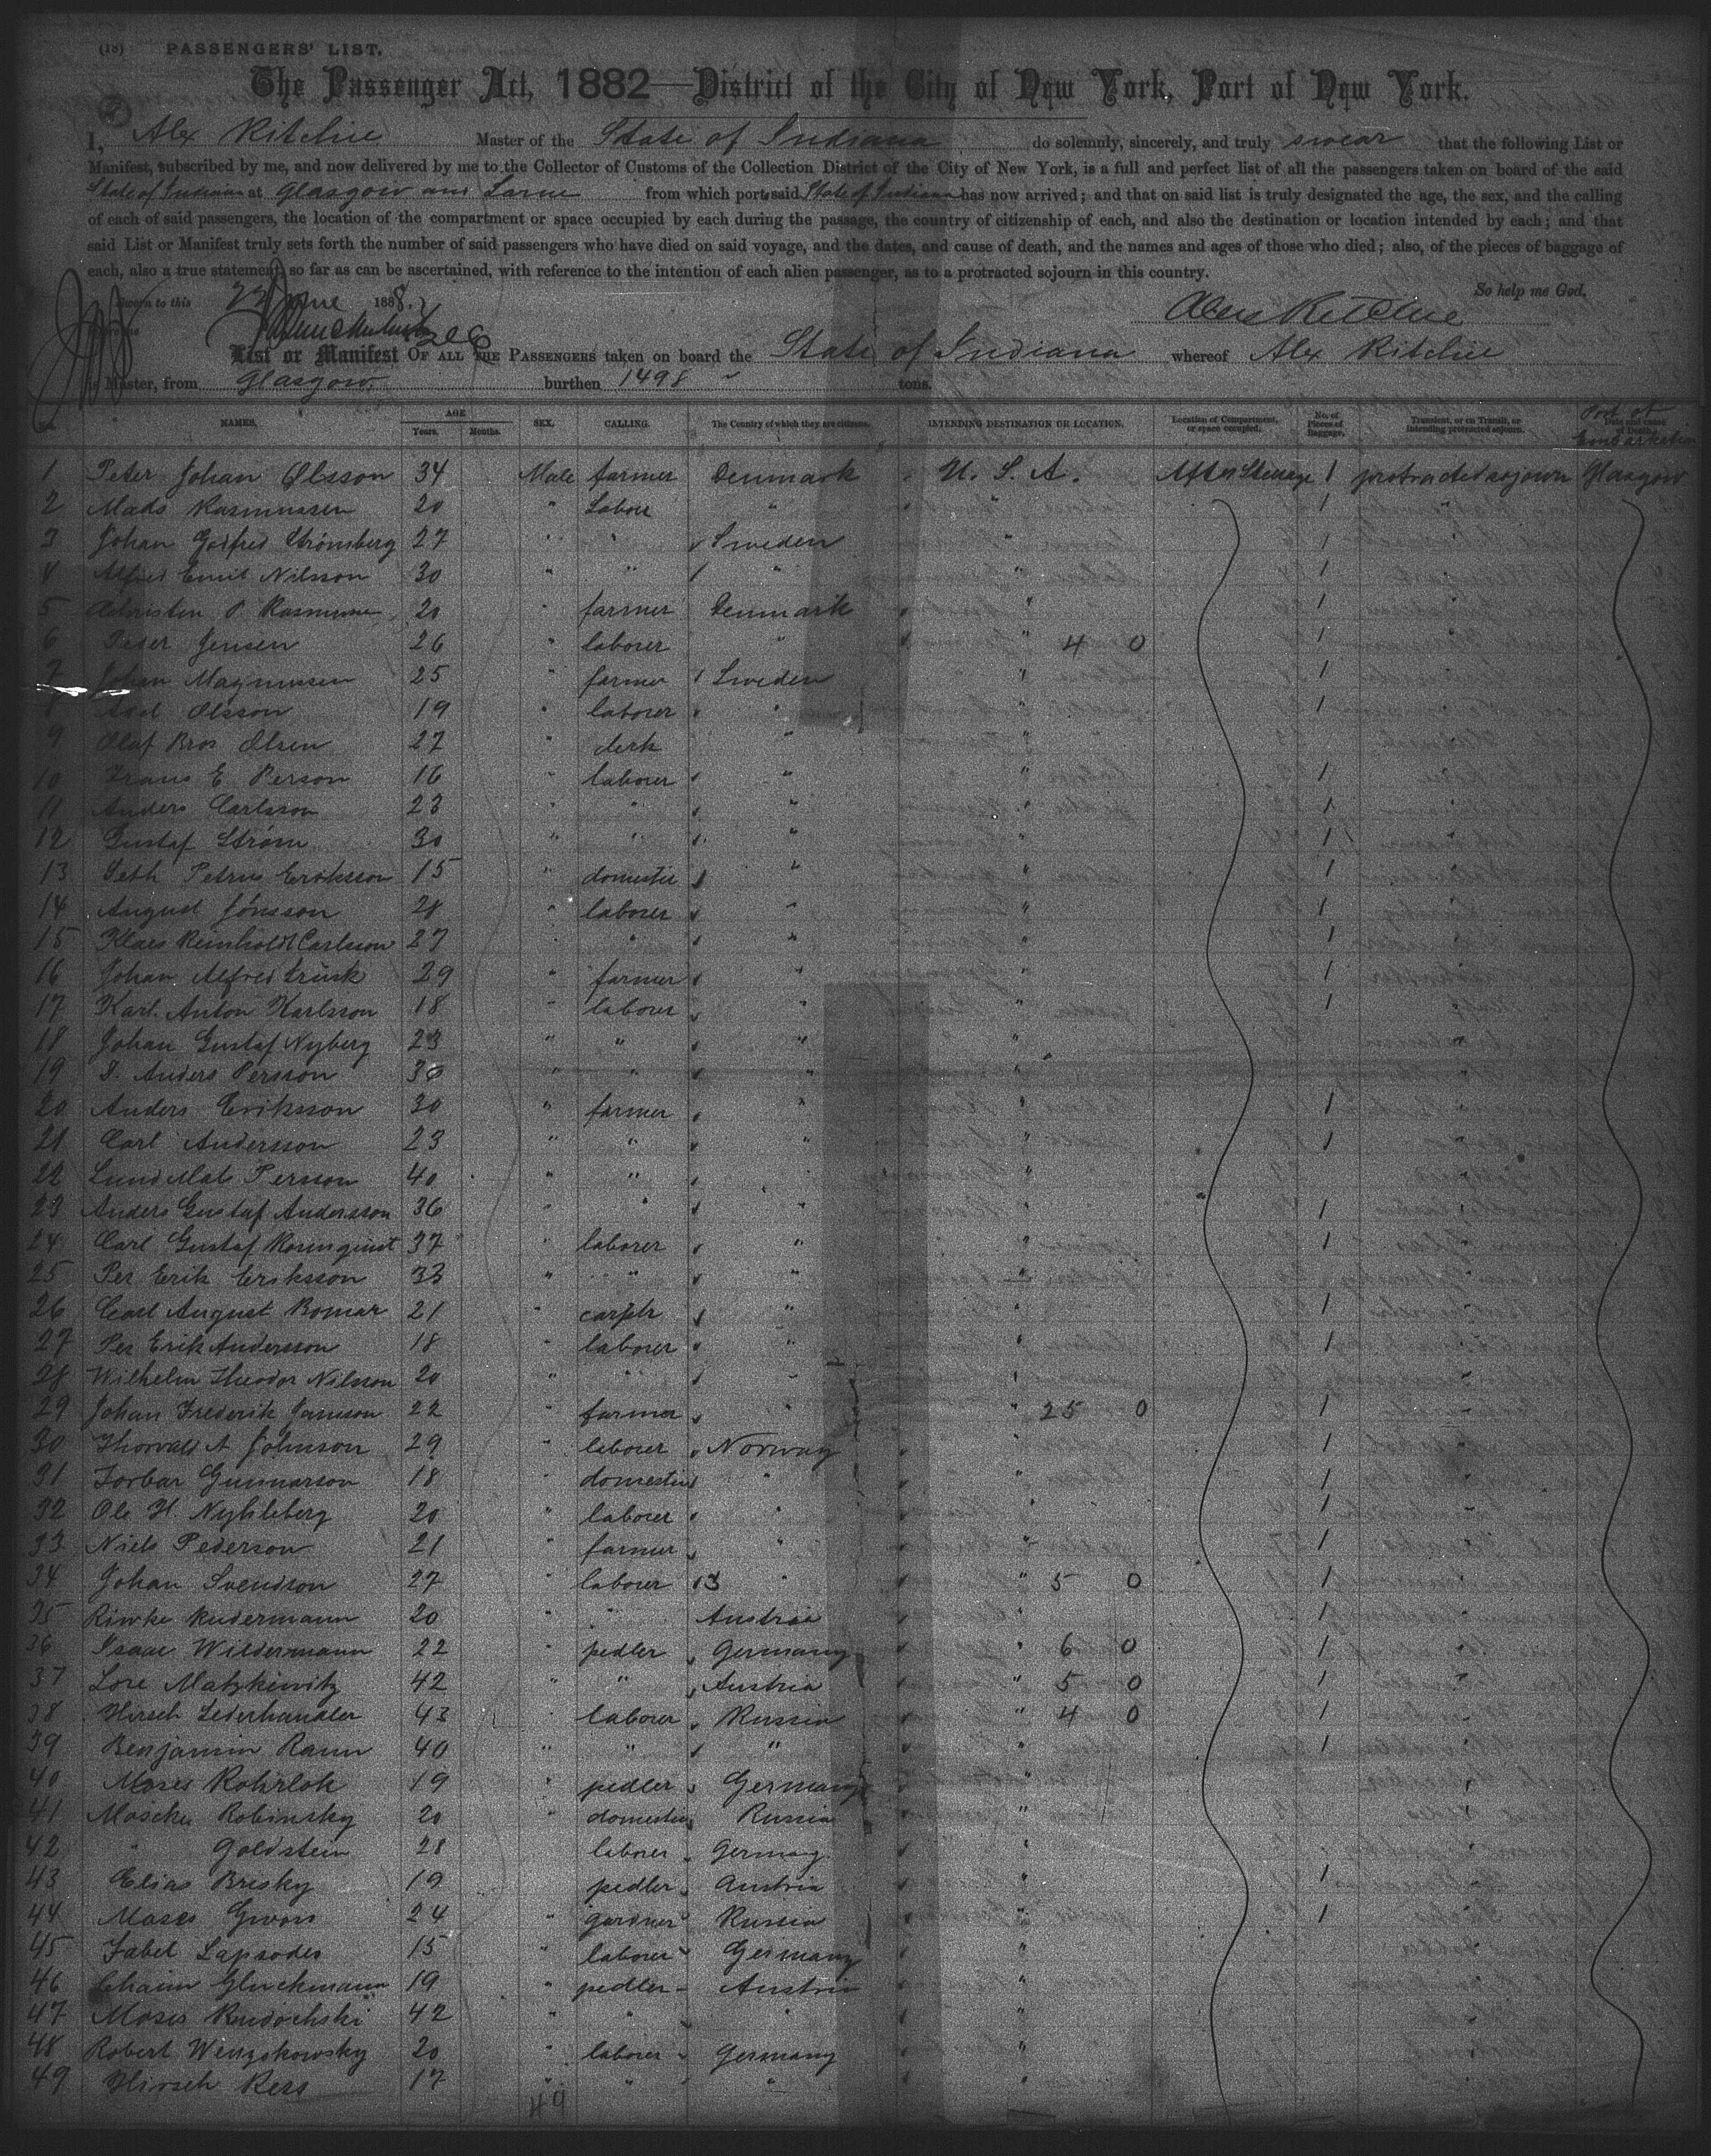 (18) PASSENGERS' LIST.
The Passenger Act, 1882—District of the City of New York, Port of New York.
I, Alex Ritchie Master of the State of Indiana do solemnly, sincerely, and truly swear that the following List or
Manifest, subscribed by me, and now delivered by me to the Collector of Customs of the Collection District of the City of New York, is a full and perfect list of all the passengers taken on board of the said
State of Indiana at Glasgow and Larne from which ports said State of Indiana has now arrived; and that on said list is truly designated the age, the sex, and the calling
of each of said passengers, the location of the compartment or space occupied by each during the passage, the country of citizenship of each, and also the destination or location intended by each; and that
said List or Manifest truly sets forth the number of said passengers who have died on said voyage, and the dates, and cause of death, and the names and ages of those who died; also, of the pieces of baggage of
each, also a true statement, so far as can be ascertained, with reference to the intention of each alien passenger, as to a protracted sojourn in this country.
So help me God.
Sworn to this 22 June 1888.
Alex Ritchie
List or Manifest OF ALL THE PASSENGERS taken on board the State of Indiana whereof Alex Ritchie
is Master, from Glasgow. burthen 1498 tons.
NAMES. AGE Years. Months. SEX. CALLING. The Country of which they are citizens. INTENDING DESTINATION OR LOCATION. Location of Compartment, or space occupied. No. of Pieces of Baggage. Transient, or in Transit, or intending protracted sojourn. Date and cause of Death. Port of Embarkation
1 Peter Johan Olsson 34 Male farmer Denmark U. S. A. Aft Steerage 1 protracted sojourn Glasgow
2 Mads Rasmussen 20 " Labour " " 1 "
3 Johan Godfred Strömberg 27 " " Sweden " 1
4 Alfred Emil Nilsson 30 " " " " 1
5 Christen P. Rasmussen 20 " farmer Denmark " 1 "
6 Peder Jensen 26 " laborer " " 4 0 1
7 Johan Magnussen 25 " farmer Sweden " 1
8 Axel Olsson 19 " laborer " " 1
9 Olaf Bros Olsen 27 " clerk " "
10 Frans E. Person 16 " laborer " " 1
11 Anders Carlsson 23 " " " " 1
12 Gustaf Ström 30 " " " " 1
13 Seth Petrus Eriksson 15 " domestic " " 1
14 August Jönsson 28 " laborer " " 1
15 Klaes Reinholdt Carlsson 27 " " " " 1
16 Johan Alfred 29 " farmer " " 1
17 Karl Anton Karlsson 18 " laborer " " 1
18 Johan Gustaf Nyberg 23 " " " " "
19 Anders Persson 36 " " " "
20 Anders Eriksson 30 " farmer " " 1
21 Carl Andersson 23 " " " " 1
22 Persson 40 " " " "
23 Anders Gustaf Andersson 36 " " " " 1
24 Carl Gustaf Rosenquist 37 " laborer " " 1
25 Per Erik Eriksson 33 " " " "
26 Carl August Bomar 21 " carptr " " 1
27 Per Erik Andersson 18 " laborer " " 1
28 Wilhelm Theodor Nilsson 20 " " " "
29 Johan Frederik 22 " farmer " " 25 0 1
30 Thorvald A Johnson 29 " laborer Norway " 1
31 Torbar Gunnarson 18 " domestic " " 1
32 Ole H. 20 " laborer " " 1
33 Niels Pederson 21 " farmer " " 1
34 Johan Svendson 27 " laborer 13 " " 5 0 1
35 Riwke Rudermann 20 " " Austria " 1
36 Isaac Wildermann 22 " pedler Germany " 6 0 1
37 Lore Matzkewitz 42 " " Austria " 5 0 1
38 Hirsch Lederhandler 43 laborer Russia " 4 0 1
39 Benjamin Rann 40 " " " " 1
40 Moses Rohrlok 19 " pedler Germany "
41 Moscku Robinsky 20 " domestic Russia "
42 " Goldstein 28 " laborer Germany "
43 Elias Bresky 19 " pedler Austria " 1
44 Moses 24 " gardner Russia " 1
45 Lapsodes 15 " laborer Germany "
46 Chaim Gluckmann 19 " pedler Austria "
47 Moses 42 " " " "
48 Robert Wengskowsky 20 " laborer Germany "
49 Hirsch Kers 17 " " " "
49